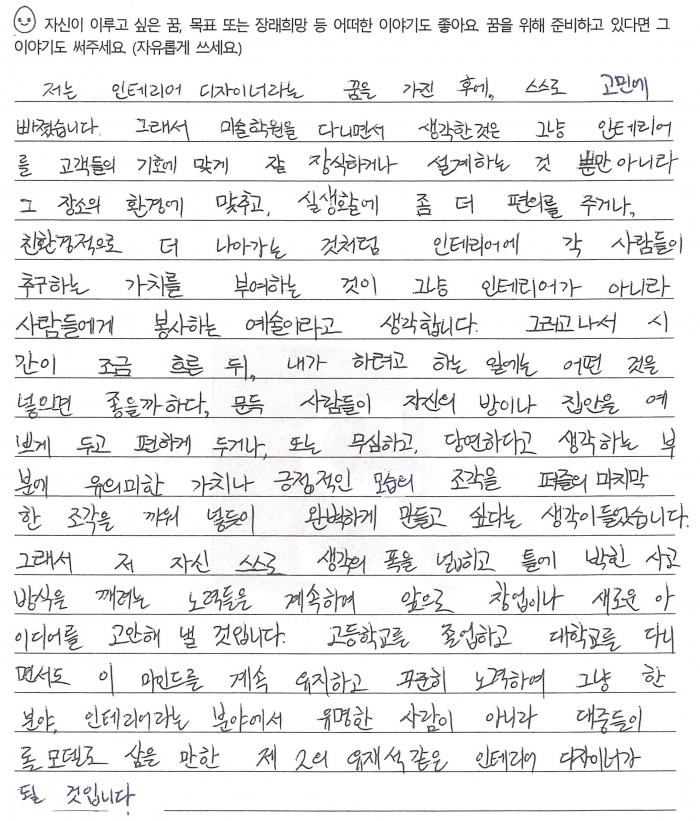 자신이 이루고 싶은 꿈, 목표 또는 장래희망 등 어떠한 이야기도 좋아요 꿈을 위해 준비하고 있다면 그
이야기도 써주세요 (자유롭게 쓰세요.)
저는 인테리어 디자이너라는 꿈을 가진 후에, 스스로 고민에
빠졌습니다. 그래서 미술학원을 다니면서 생각한것은 그냥 인테리어
를 고객들의 기호에 맞게 잘 장식하거나 설계하는 것 뿐만 아니라
그 장소의 환경에 맞추고, 실생활에 좀 더 편의를 주거나,
친환경적으로 더 나아가는 것처럼 인테리어에 각 사람들이
추구하는 가치를 부여하는 것이 그냥 인테리어가 아니라
사람들에게 봉사하는 예술이라고 생각합니다. 그러고나서 시
간이 조금 흐른 뒤, 내가 하려고 하는 일에는 어떤 것을
넣으면 좋을까하다, 문득 사람들이 자신의 방이나 집안을 예
쁘게 두고 편하게 두거나, 또는 무심하고, 당연하다고 생각하는 부
분에 유의미한 가치나 긍정적인 모습의 조각을 퍼즐의 마지막
한 조각을 끼워 넣듯이 완벽하게 만들고 싶다는 생각이들었습니다.
그래서 저 자신 스스로 생각의 폭을 넓히고 틀에 박힌 사고
방식을 깨려는 노력들은 계속하며 앞으로 창업이나 새로운 아
이디어를 고안해 낼 것입니다. 고등학교를 졸업하고 대학교를 다니
면서도 이 마인드를 계속 유지하고 꾸준히 노력하여 그냥 한
분야, 인테리어라는 분야에서 유명한 사람이 아니라 대중들이
롤모델로 삼을 만한 제 2의 유재석같은 인테리어 디자이너가
될 것입니다